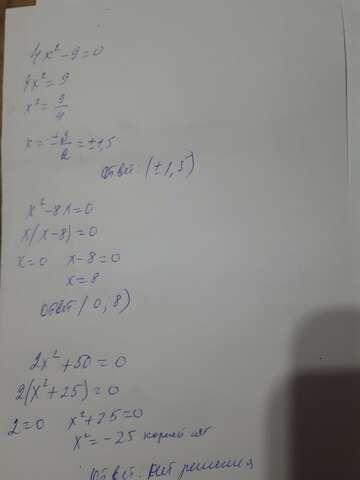 4x²-9=0
4x²=9
x²=9/4
x=±3/2=±1,5
Ответ: (±1,5)
x²-8x=0
x(x-8)=0
x=0 x-8=0
x=8
Ответ: (0; 8)
2x²+50=0
2(x²+25)=0
2=0 x²+25=0
x²=-25 корней нет
Ответ: нет решения